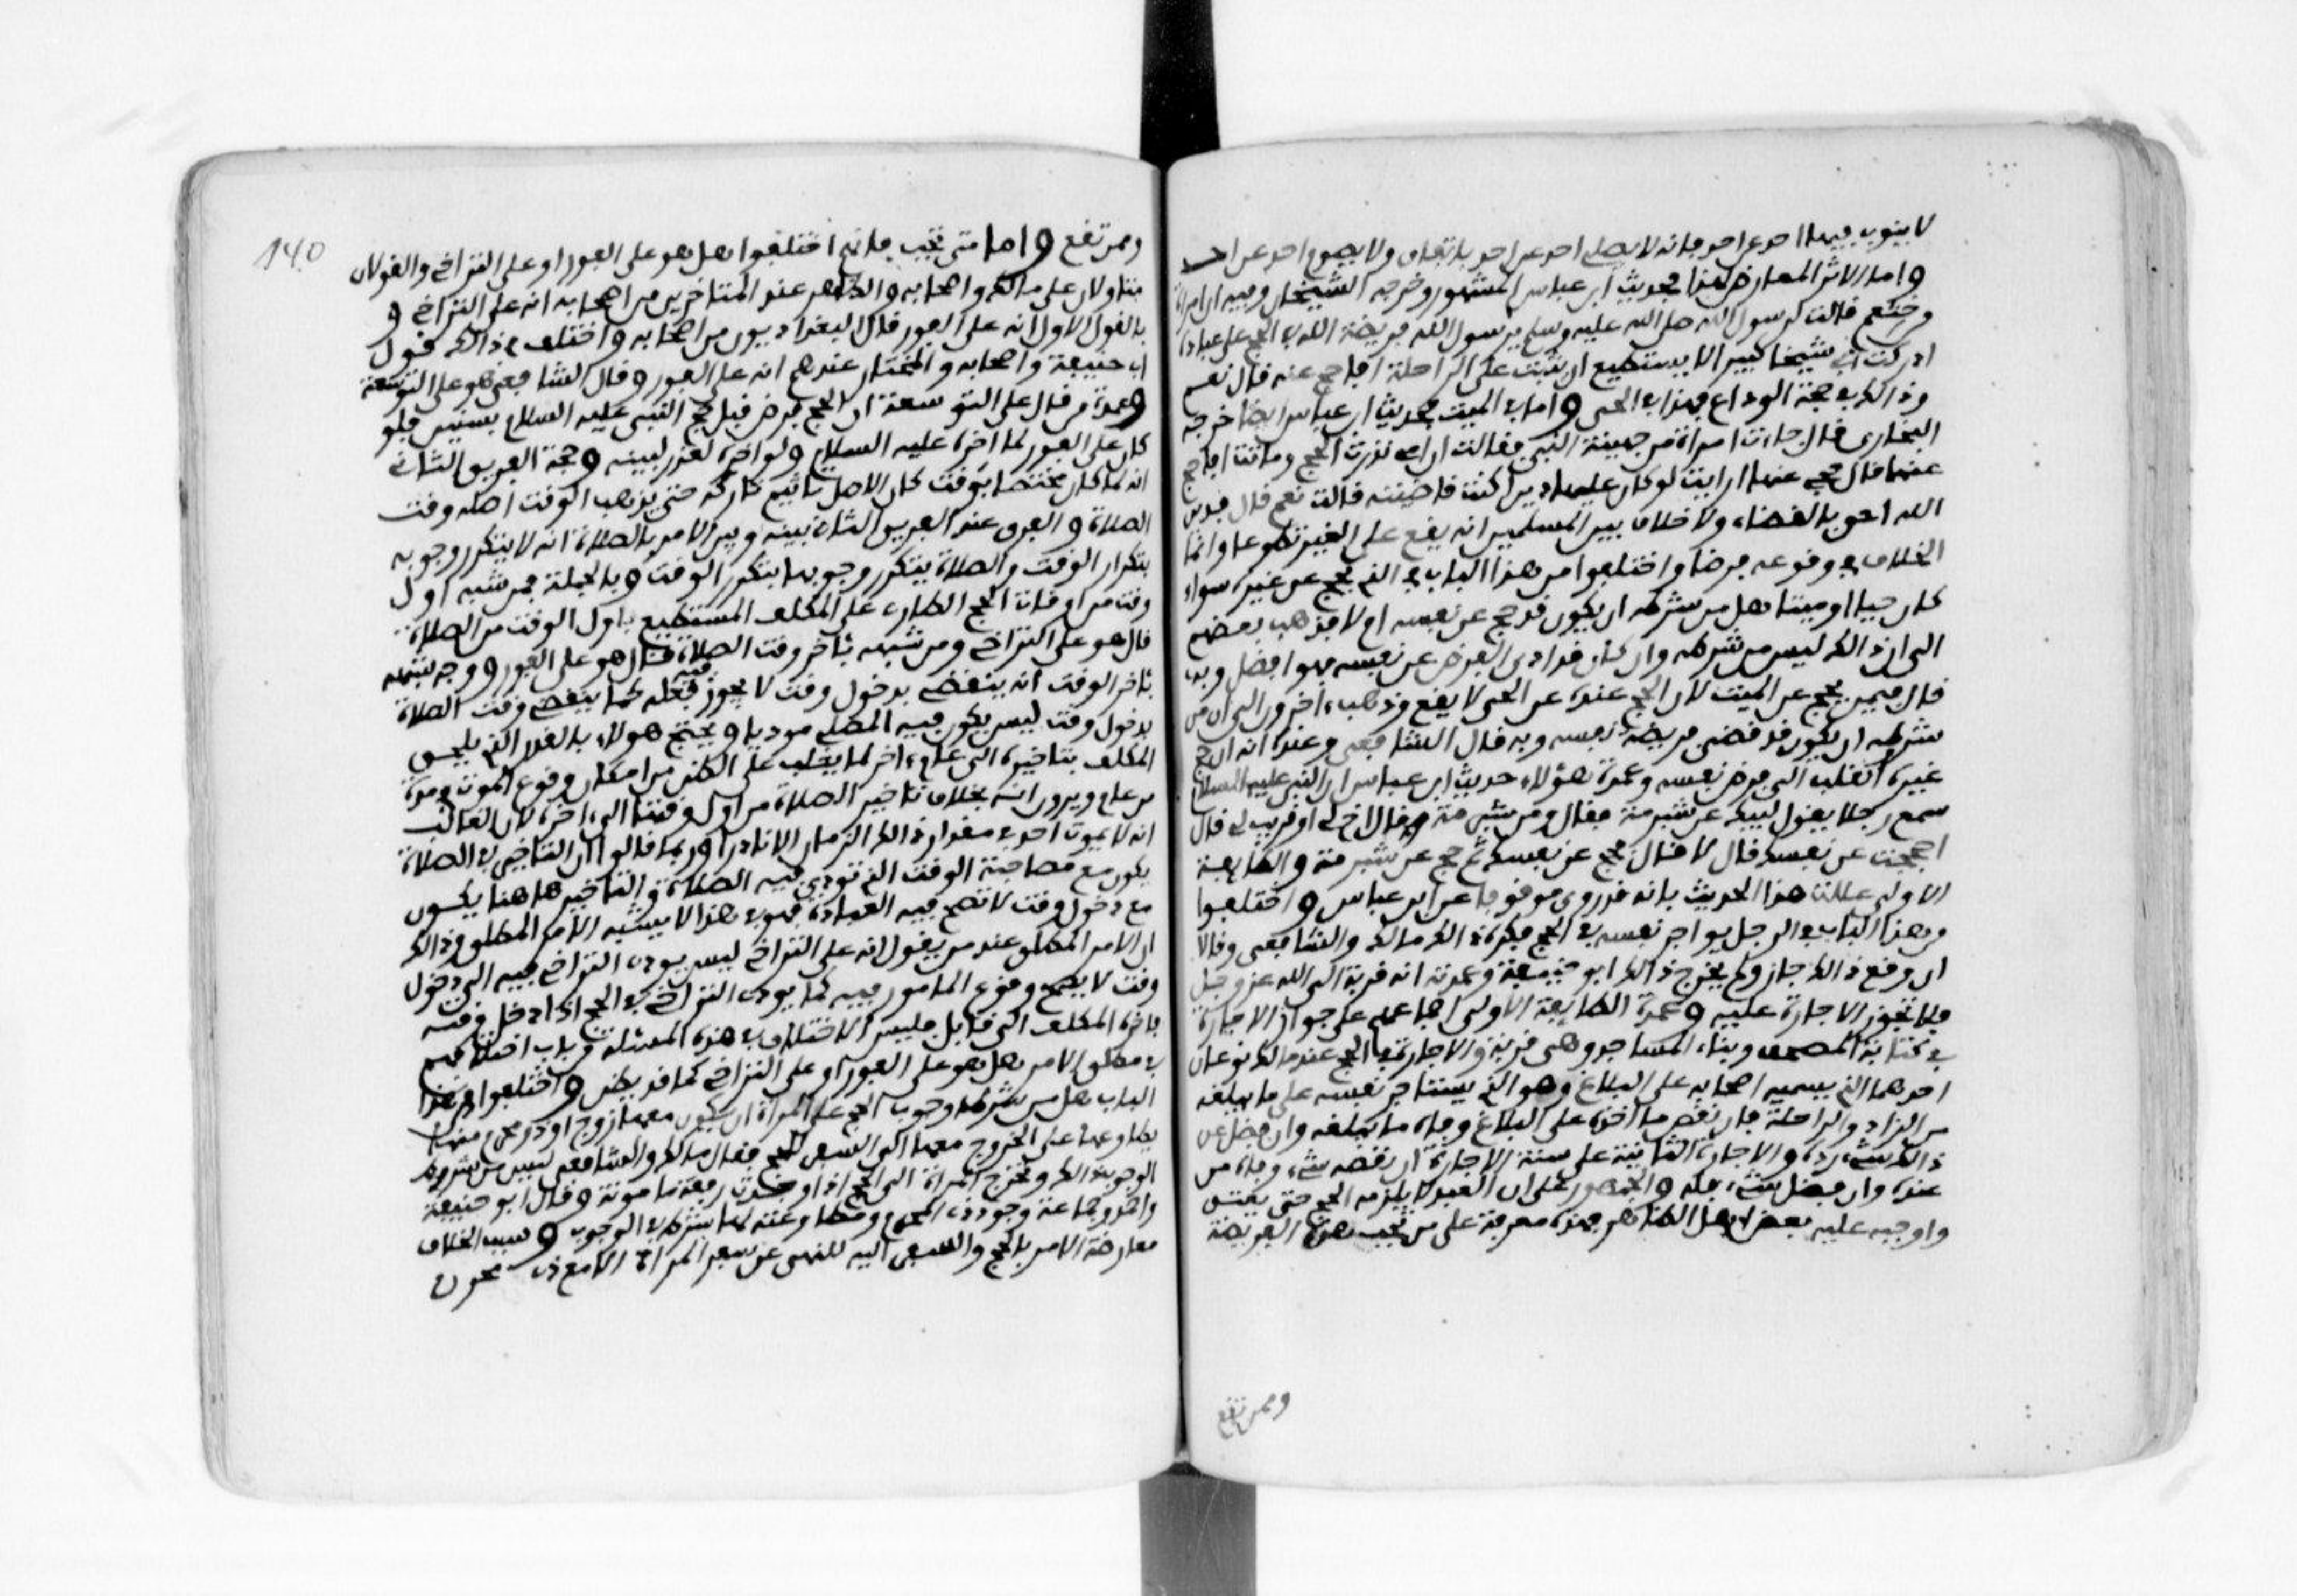 لا ينوب فيها احد عن احد فانه لا يصلي احد عن احد باتفاق ولا يصوم احد عن احد
واما الاثر المعارض لهذا فحديث ابن عباس المشهور وخرجه الشيخان وفيه ان امراة
من خثعم قالت لرسول الله صلى الله عليه وسلم يرسول الله فريضة الله في الحج على عباده
ادركت ابي شيخا كبيرا لا يستطيع ان يثبت على الراحلة افاحج عنه قال نعم
وذالك في حجة الوداع فهذا في الحي واما في الميت فحديث ابن عباس ايضا خرجه
البخاري قال جاءت امراة من جهينة النبي فقالت ان امي نذرت الحج وماتت افاحج
عنها قال حجي عنها ارايت لو كان عليها دين اكنت قاضيته قالت نعم قال فدين
الله احق بالقضاء ولا خلاف بين المسلمين انه يقع على الغير تطوعا وانما
الخلاف في وقوعه فرضا واختلفوا من هذا الباب في الذي يحج عن غيره سواء
كان حيا او ميتا هل من شرطه ان يكون قد حج عن نفسه ام لا فذهب بعضهم
الى ان ذالك ليس من شرطه وان كان قد ادى الفرض عن نفسه فهو افضل وبه
قال فيمن يحج عن الميت لان الحج عنده عن الحي لا يقع وذهب ءاخرون الى ان من
شرطه ان يكون قد قضى فريضة نفسه وبه قال الشافعي وعنده انه ان حج
غيره انقلب الى فرض نفسه وعمدة هؤلاء حديث ابن عباس ان النبي عليه السلام
سمع رجلا يقول لبيك عن شبرمة فقال ومن شبرمة قال اخ لي او قريب لي قال
احججت عن نفسك قال لا قال حج عن نفسك ثم حج عن شبرمة والطايفة
الاولى عللت هذا الحديث بانه قد روي موقوفا عن ابن عباس واختلفوا
من هذا الباب في الرجل يواجر نفسه في الحج فكره ذالك مالك والشافعي وقالا
ان وقع ذالك جاز ولم يجز ذالك ابو حنيفة وعمدته انه قربة الى الله عز وجل
فلا تجوز الاجارة عليه وعمدة الطايفة الاولى اجماعهم على جواز الاجارة
في كتابة المصحف وبناء المساجد وهي قربة والاجارة في الحج عند مالك نوعان
احدهما الذي يسميه اصحابه على البلاغ وهو الذي يستاجر نفسه على ما يبلغه
من الزاد والراحلة فان نقص ما اخذه على البلاغ وفاه ما يبلغه وان فضل عن
ذالك شيء رده والاجارة الثانية على سنة الاجارة ان نقصه شيء وفاه من
عنده وان فضل شيء فله والجمهور على ان العبد لا يلزمه الحج حتى يعتق
واوجبه عليه بعض اهل الظاهر فهذه معرفة على من تجب هذه الفريضة
وممن تقع
140
وممن تقع واما متى تجب فانهم اختلفوا هل هو على الفور او على التراخي والقولان
متاولان على مالك واصحابه والظاهر عند المتاخرين من اصحابه انه على التراخي و
بالقول الاول انه على الفور قال البغداديون من اصحابه واختلف في ذالك قول
ابي حنيفة واصحابه والمختار عندهم انه على الفور وقال الشافعي هو على التوسعة
وعمدة من قال على التوسعة ان الحج فرض قبل حج النبي عليه السلام بسنين فلو
كان على الفور لما اخره عليه السلام ولو اخره لعذر لبينه وحجة الفريق الثاني
انه لما كان مختصا بوقت كان الاصل تاثيم تاركه حتى يذهب الوقت اصله وقت
الصلاة والفرق عند الفريق الثاني بينه وبين الامر بالصلاة انه لا يتكرر وجوبه
بتكرار الوقت والصلاة يتكرر وجوبها بتكرر الوقت وبالجملة فمن شبه اول
وقت من اوقات الحج الطارء على المكلف المستطيع باول الوقت من الصلاة
قال هو على التراخي ومن شبهه بئاخر وقت الصلاة قال هو على الفور ووجه شبهه
بئاخر الوقت انه ينقضي بدخول وقت لا يجوز فيه فعله كما ينقضي وقت الصلاة
بدخول وقت ليس يكون فيه المصلي موديا ويحتج هولاء بالغرر الذي يلحق
المكلف بتاخيره الى عام ءاخر لما يغلب على الظن من امكان وقوع الموت في مدة
من عام ويرون انه بخلاف تاخير الصلاة من اول وقتها الى ءاخره لان الغالب
انه لا يموت احد في مقدار ذالك الزمان الا نادرا وربما قالوا ان التاخير في الصلاة
يكون مع مصاحبة الوقت الذي تودى فيه الصلاة والتاخير هاهنا يكون
مع دخول وقت لا تصح فيه العبادة فهو في هذا لا يشبه الامر المطلق وذالك
ان الامر المطلق عند من يقول انه على التراخي ليس يودي التراخي فيه الى دخول
وقت لا يصح وقوع المامور فيه كما يودي التراخي في الحج اذا دخل وقته
فاخره المكلف الى قابل فليس الاختلاف في هذه المسئلة من باب اختلافهم
في مطلق الامر هل هو على الفور او على التراخي كما قد يظن واختلفوا من هذا
الباب هل من شرط وجوب الحج على المراة ان يكون معها زوج او ذو محرم منها
يطاوعها على الخروج معها الى السفر للحج فقال مالك والشافعي ليس من شرط
الوجوب ذالك وتخرج المراة الى الحج اذا وجدت رفقة مامونة وقال ابو حنيفة
واحمد وجماعة وجود ذي المحرم ومطاوعته لها شرط في الوجوب وسبب الخلاف
معارضة الامر بالحج والسفر اليه للنهي عن سفر المراة الا مع ذي محرم